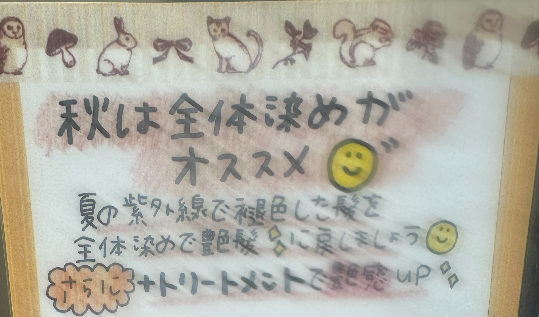 秋は全体染めが
オススメ
夏の紫外線で褪色した髪を
全体染めで艶髪に戻しましょう
さらに+トリートメントで艶感UP